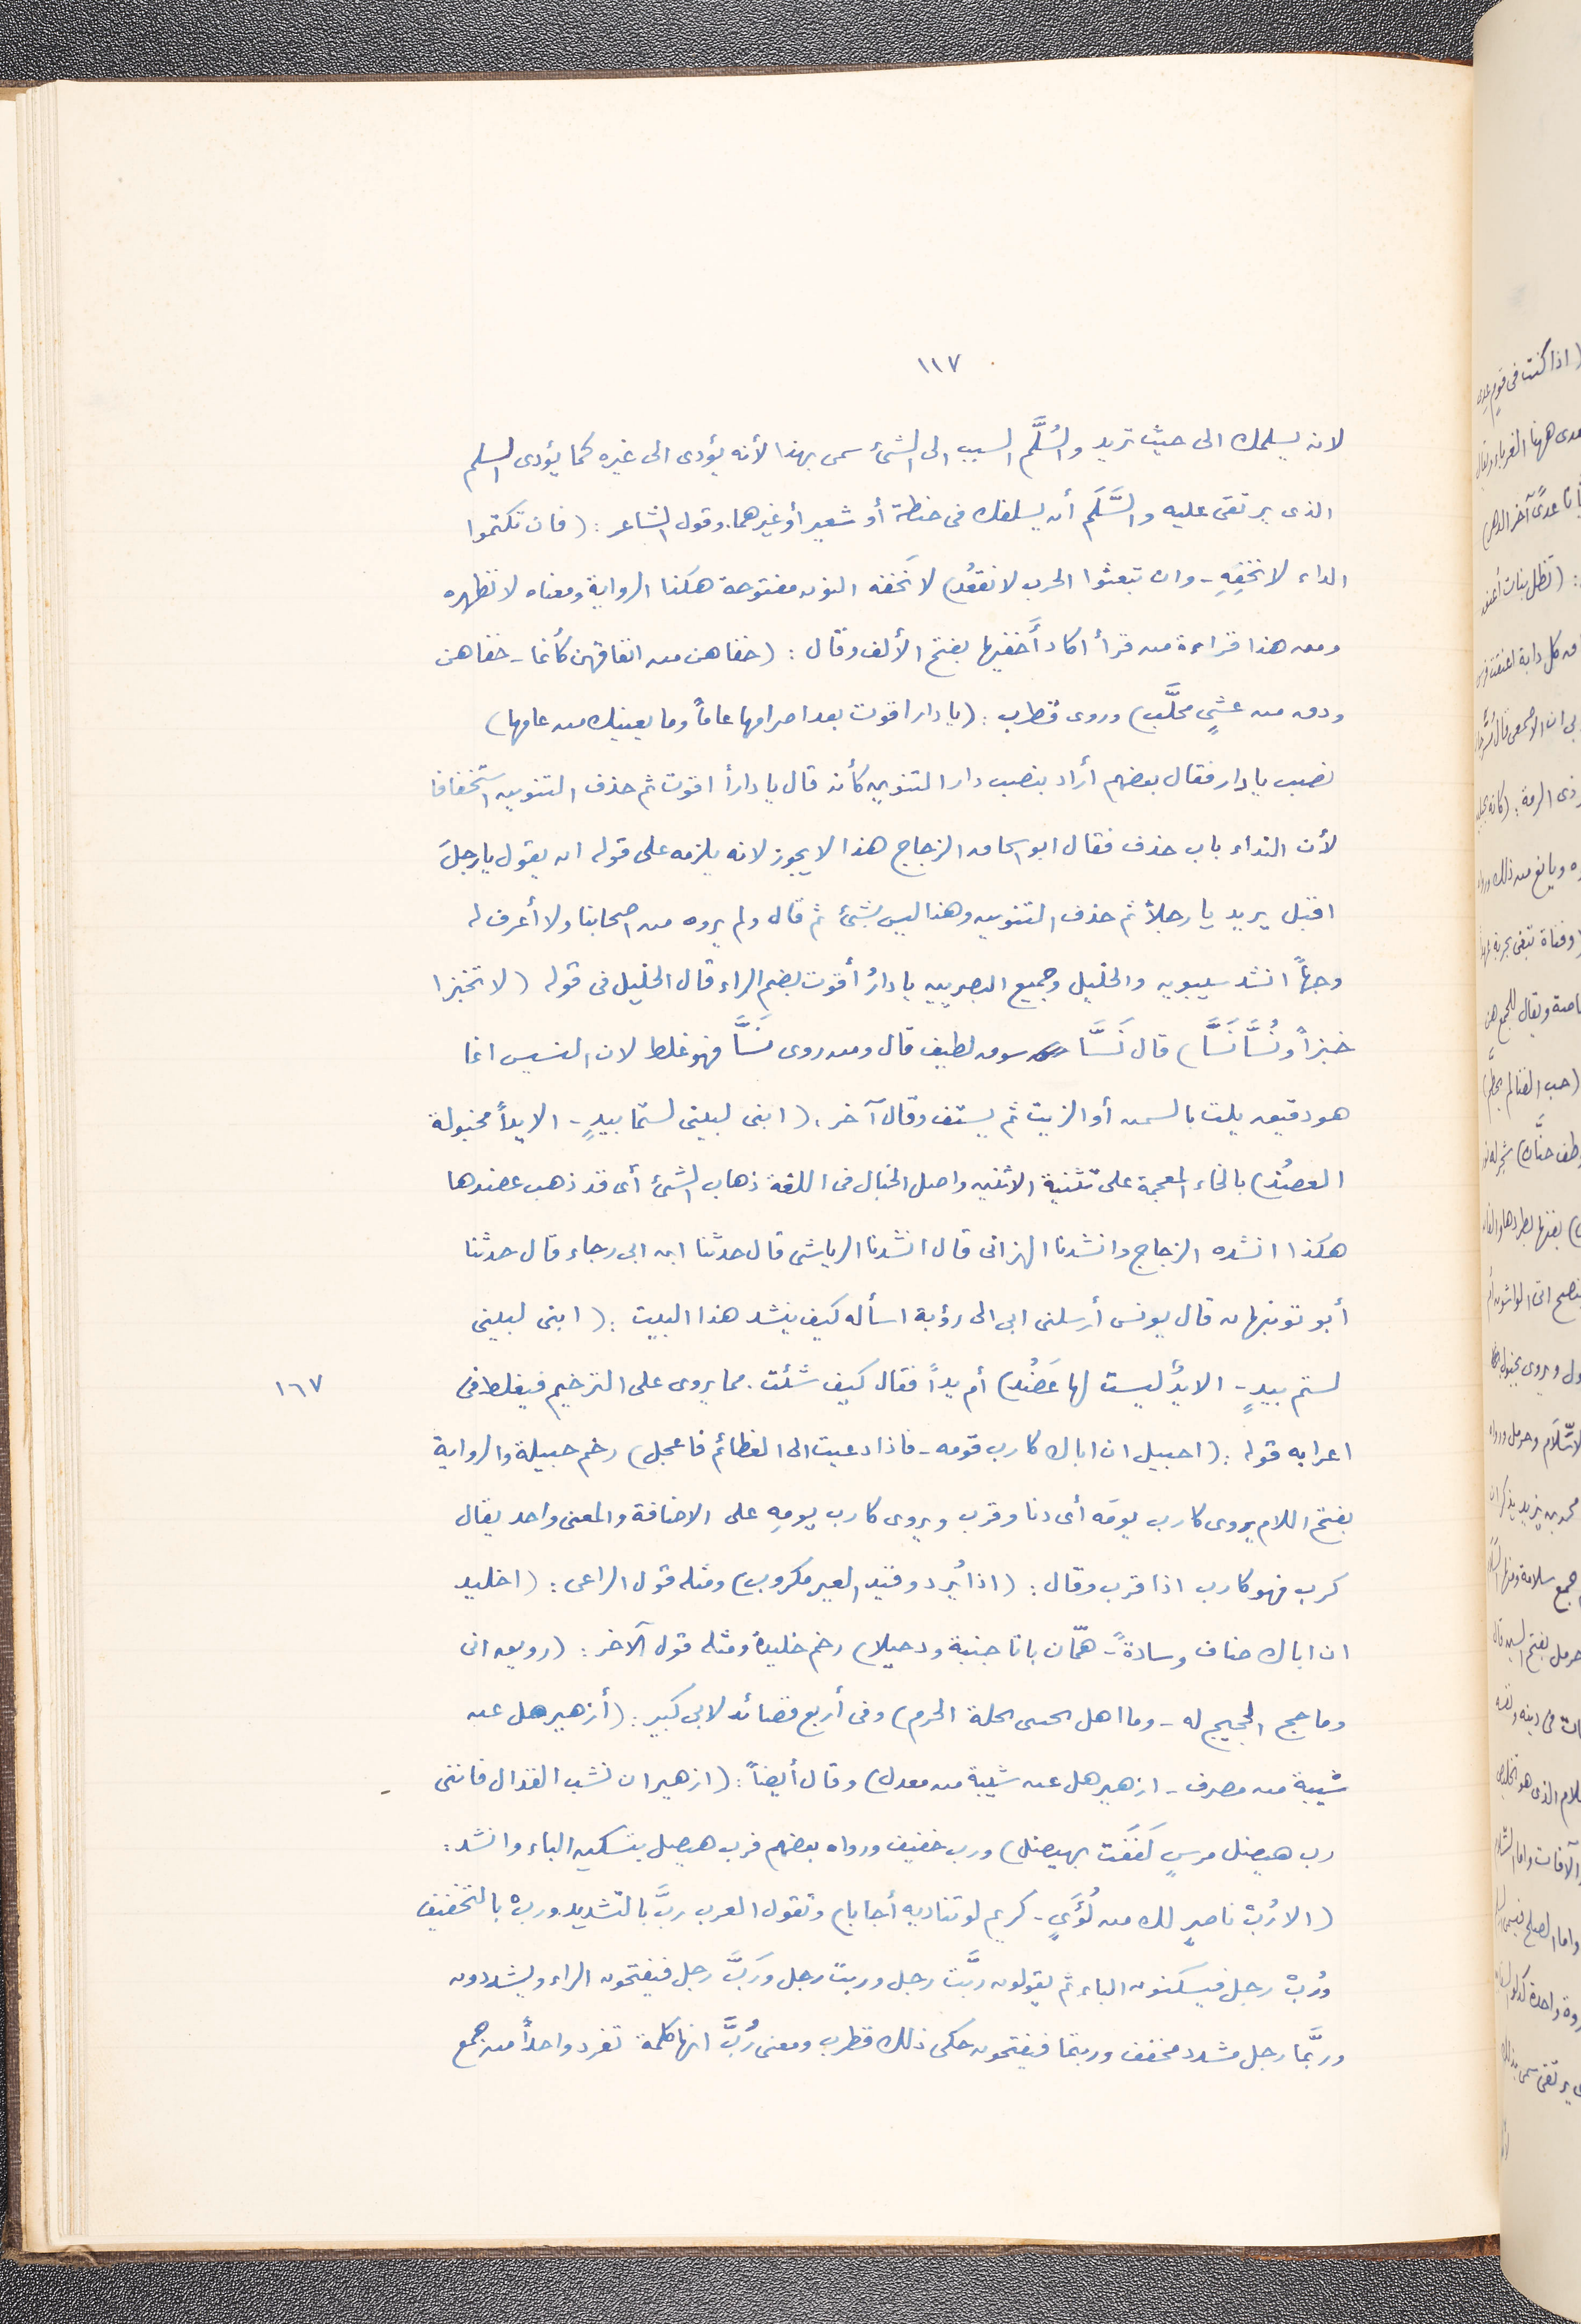 ١١٧
لانه يسلمك الى حيث تريد والسُلَّم السبب الى الشئ سمى بهذا لأنه يؤدى الى غيره كما يؤدى السلم
الذى يرتقى عليه والسَّلَم أن يسلفك فى حنطة أو شعير أو غيرهما. وقول الشاعر : (فان تكتموا
الداء لا نخفِهِ - وان تبعثوا الحرب لا نقعُد) لا نَخفه النون مفتوحة هكذا الرواية ومعناه لا نظهره
ومن هذا قراءة من قرأ اكاد أَخفيها بفتح الألف وقال : (خفاهن من انفاقهن كأنما - خفاهن
ودق من عشىٍ محلَّب) وروى قطرب : (يا دار اقوت بعد اصرامها عاماً وما يعنيك من عامها)
نصب يا دار فقال بعضهم أراد بنصب دار التنوين كأنه قال يا داراً اقوت ثم حذف التنوين استخفافا
لأن النداء باب حذف فقال ابو اسحاق الزجاج هذا لا يجوز لانه يلزمه على قوله ان يقول يا رجلَ
اقبل يريد يا رجلاً ثم حذف التنوين وهذا ليس بشئ ثم قال ولم يروه من اصحابنا ولا أعرف له
وجهاً انشد سيبويه والخليل وجميع البصريين يا دارُ أقوت بضم الراء قال الخليل فى قوله (لا تخبزا
خبزاً ونُسَّا نَسَّا) قال نَسَّا سوق لطيف قال ومن روى نَسَّا فهو غلط لان النسيس انما
هو دقيق يلت بالسمن أو الزيت ثم يستف وقال آخر : (ابنى لبينى لستما بيدٍ - الا يداً مخبولة
العضُد) بالخاء المعجمة على تثنية الاثنين واصل الخبال فى اللغة ذهاب الشئ أى قد ذهب عضدها
هكذا انشده الزجاج وانشدنا الهزانى قال انشدنا الرياشى قال حدثنا ابن ابى رجاء قال حدثنا
أبو قال يونس أرسلنى ابى الى رؤبة اسأله كيف ينشد هذا البيت : (ابنى لبينى
لستم بيدٍ - الا يدٌ ليست لها عَضُد) أم يداً فقال كيف شئت. مما يروى على الترخيم فيغلط فى
١٦٧
اعرابه قوله : (احبيل ان اباك كارب قومه - فاذا دعيت الى العظائم فاعجل) رخم حبيلة والرواية
بفتح اللام يروى كارب يومَه أى دنا وقرب ويروى كارب يومِه على الاضافة والمعنى واحد يقال
كرب فهو كارب اذا قرب وقال : (اذا يُرد وقيد العير مكروب) ومثله قول الراعى : (اخليد
ان اباك ضاف وسادةً - همّان باتا جنبة ودخيلا) رخم خليدة ومثله قول الآخر : (رويق انى
وما حج الحجيج له - وما اهل الحرم) وفى أربع قصائد لابى كبير : (أزهير هل عن
شيبة من مصرف - ازهير هل عن شيبة من معدل) وقال أيضاً : (ازهير ان نشب القذال فاننى -
رب هيضل مرسٍ لَفَفَت بهيضل) ورب خفيف ورواه بعضهم فرب هيضل بتسكين الباء وانشد :
(الا رُبْ ناصرٍ لك من لُؤَىٍ - كريم لو تناديه أجابا) وتقول العرب ربَّ بالتشديد وربْ بالتخفيف
ورُبْ رجل فيسكنون الباء ثم يقولون ربَّت رجل وربت رجل ورَبَّ رجل فيفتحون الراء ويشددون
وربَّما رجل مشدد مخفف وربتما فيفتحون حكى ذلك قطرب ومعنى رُبَّ انها كلمة تفرد واحداً من جمع